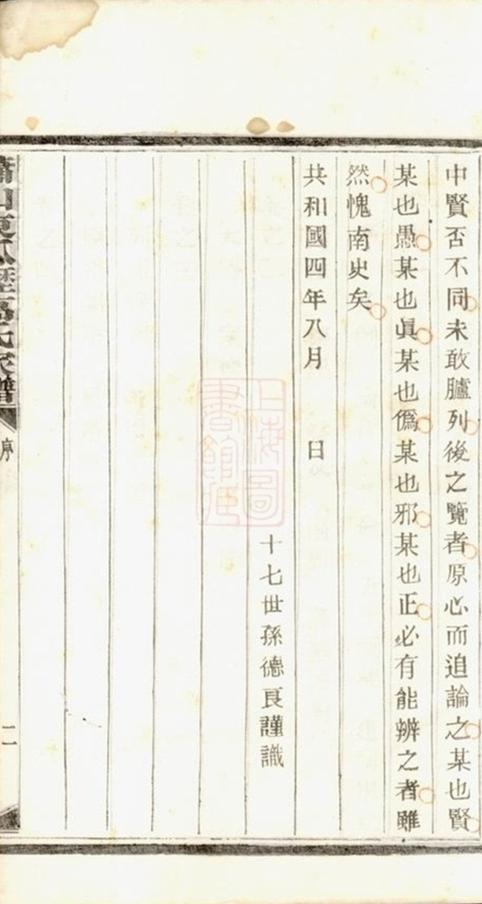 中賢否不同未敢臚列後之覽者原心而追論之某也賢
某也愚某也眞某也僞某也邪某也正必有能辨之者雖
然愧南史矣
共和國四年八月 日
十七世孫德良謹識
氏家譜
序
二
上海圖
書館藏